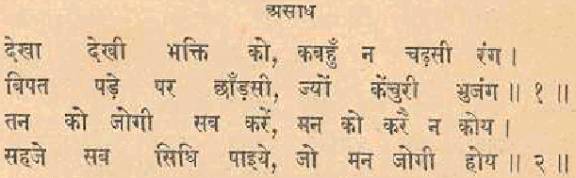 असाध
देखा देखी भक्ति को, कबहुँ न चढ़सी रंग ।
बिपत पड़े पर छाँड़सी, ज्यों केंचुरी भुजंग ॥ १ ॥
तन को जोगी सब करें, मन को करै न कोय ।
सहजे सब सिधि पाइये, जो मन जोगी होय ॥ २ ॥